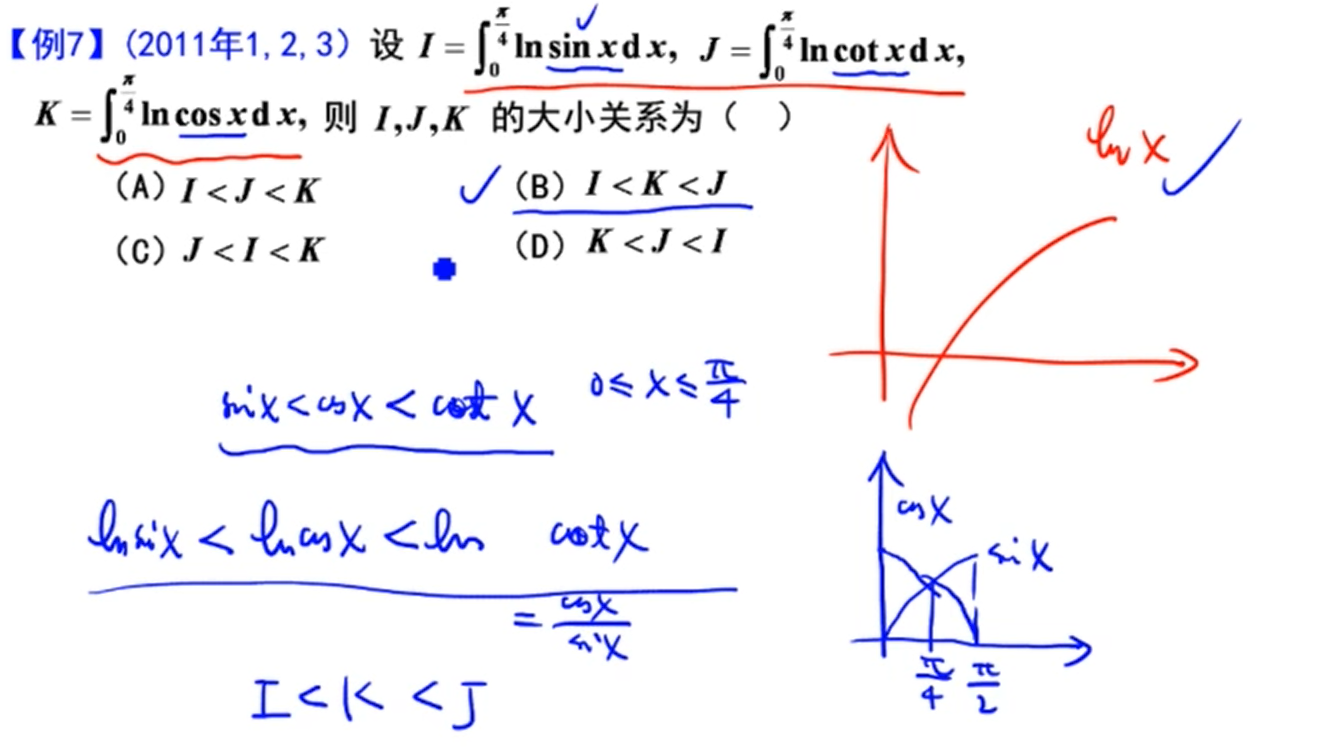 【例7】(2011年1,2,3) 设 I = ∫₀^{π/4} ln sin x dx, J = ∫₀^{π/4} ln cot x dx,
K = ∫₀^{π/4} ln cos x dx, 则 I,J,K 的大小关系为 ( )
(A) I < J < K (B) I < K < J
(C) J < I < K (D) K < J < I
ln x
sin x < cos x < cot x 0 ≤ x ≤ π/4
ln sin x < ln cos x < ln cot x
= cos x / sin x
I < K < J
cos x
sin x
π/4 π/2